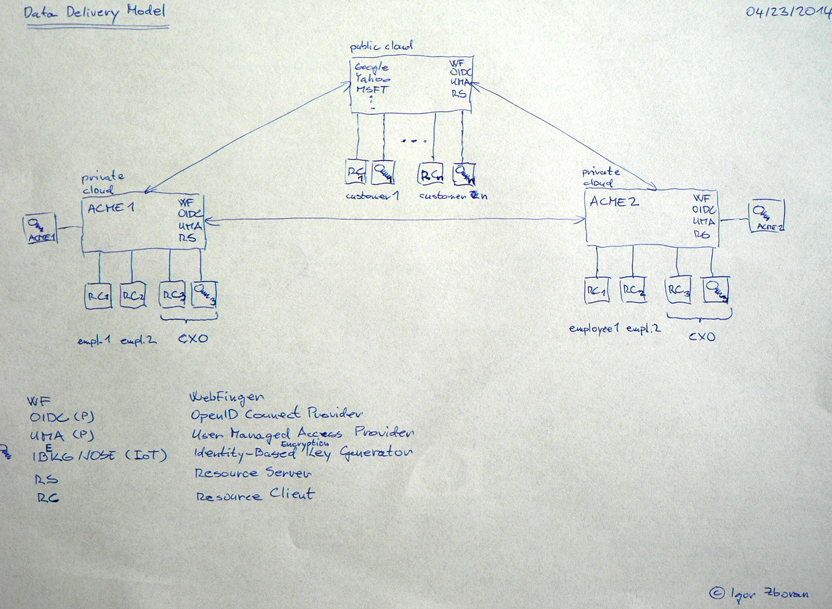 Data Delivery Model
04/23/2014
public cloud
Google
Yahoo
MSFT
WF
OIDC
UMA
RS
RC1
RCn
customer 1
customer n
private
cloud
ACME1
WF
OIDC
UMA
RS
ACME1
RC1
RC2
RC3
3
empl.1 empl.2
CXO
private
cloud
ACME2
WF
OIDC
UMA
RS
ACME2
RC1
RC2
RC3
employee1 empl.2
CXO
WF WebFinger
OIDC (P) OpenID Connect Provider
UMA (P) User Managed Access Provider
IBEKG/NOSE (IoT) Identity-Based Encryption Key Generator
RS Resource Server
RC Resource Client
© Igor Zboran